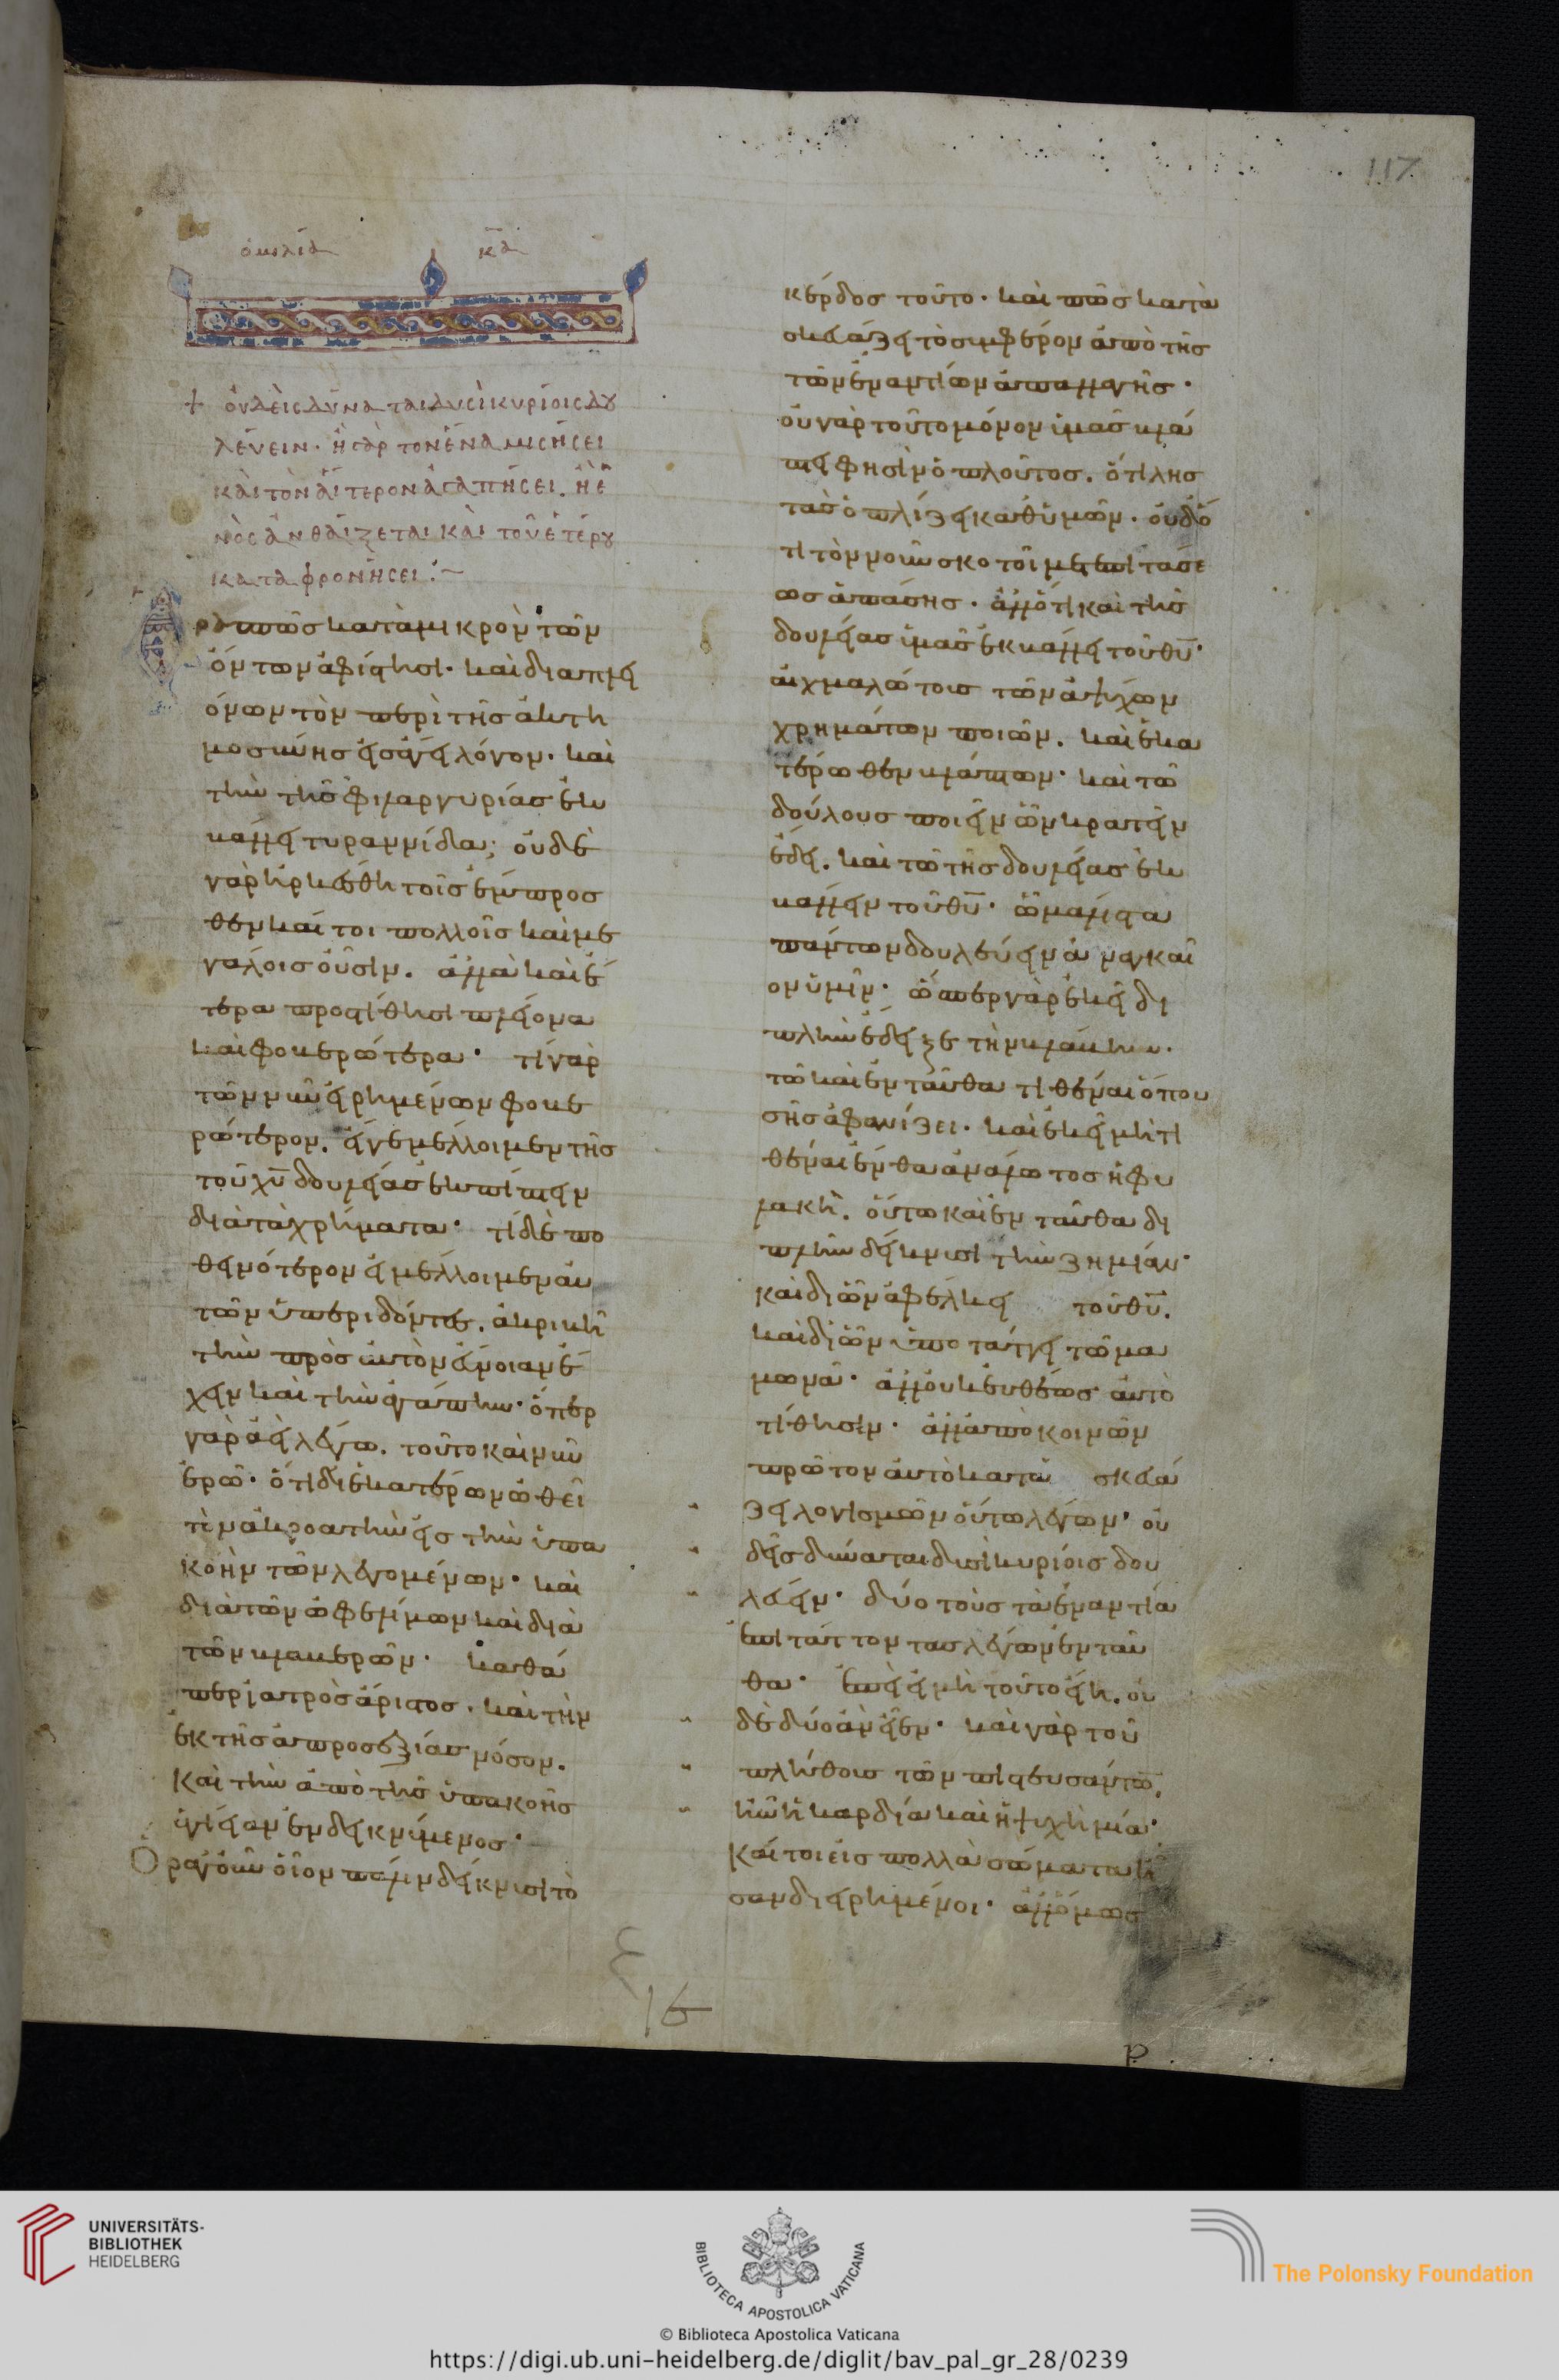 117
ὁμιλία κα
+ οὐδεὶς δύναται δυσὶ κυρίοις δου
λεύειν· ἢ γὰρ τὸν ἕνα μισήσει
καὶ τὸν ἕτερον ἀγαπήσει. ἢ ἑ
νὸς ἀνθέξεται καὶ τοῦ ἑτέρου
καταφρονήσει:~
ρᾶς πῶς κατὰ μικρὸν τῶν
ὄντων ἀφίστησι· καὶ διὰ πλει
όνων τὸν περὶ τῆς ἀκτη
μοσύνης εἰσάγει λόγον· καὶ
τὴν τῆς φιλαργυρίας ἐκ
βάλλει τυραννίδα; οὐδὲ
γὰρ ἠρκέσθη τοῖς ἔμπροσ
θεν καί τοι πολλοῖς καὶ με
γάλοις οὖσιν. ἀλλὰ καὶ ἕ
τερα προστίθησι πλείονα
καὶ φοβερώτερα· τί γὰρ
τῶν νῦν εἰρημένων φοβε
ρώτερον. εἴ γε μέλλοιμεν τῆς
τοῦ χυ δουλείας ἐκπίπτειν
διὰ τὰ χρήματα· τί δὲ πο
θεινότερον εἰ μέλλοιμεν αὐ
τῶν ὑπεριδόντες. ἀκριβῆ
τὴν πρὸς αὐτὸν εὔνοιαν ἕ
χειν καὶ τὴν ἀγάπην· ὅπερ
γὰρ ἀεὶ λέγω. τοῦτο καὶ νῦν
ἐρῶ· ὅτι δι' ἑκατέρων ὠθεῖ
τὸν ἀκροατὴν εἰς τὴν ὑπα
κοὴν τῶν λεγομένων· καὶ
διὰ τῶν ὠφελίμων καὶ διὰ
τῶν βλαβερῶν· καθά
περ ἰατρὸς ἄριστος. καὶ τὴν
ἐκ τῆς ἀπροσεξίας νόσον.
καὶ τὴν ἀπὸ τῆς ὑπακοῆς
ὑγίειαν ἐνδεικνύμενος·
Ὅρα γοῦν οἷον πάλιν δείκνυσι τὸ
κέρδος τοῦτο· καὶ πῶς κατα
σκευάζει τὸ συμφέρον ἀπὸ τῆς
τῶν ἐναντίων ἀπαλλαγῆς·
οὐ γὰρ τοῦτο μόνον ὑμᾶς βλά
πτει φησὶν ὁ πλοῦτος. ὅτι λησ
τὰς ὁπλίζει καθ' ὑμῶν· οὐδ' ὅ
τι τὸν νοῦν σκοτοῖ μετ' ἐπιτάσε
ως ἁπάσης· ἀλλ' ὅτι καὶ τῆς
δουλείας ὑμᾶς ἐκβάλλει τοῦ θυ·
αἰχμαλώτους τῶν ἀψύχων
χρημάτων ποιῶν. καὶ ἑκα
τέρωθεν βλάπτων· καὶ τῶ
δούλους ποιεῖν ὧν κρατεῖν
ἔδει. καὶ τῶ τῆς δουλείας ἐκ
βάλλειν τοῦ θυ· ὧ μάλιστα
πάντων δουλεύειν ἀναγκαῖ
ον ὑμῖν· ὥσπερ γὰρ ἐκεῖ δι
πλῆν ἔδειξε τὴν βλάβην.
τῶ καὶ ἐνταῦθα τιθέναι ὅπου
σὴς ἀφανίζει· καὶ ἐκεῖ μὴ τι
θέναι ἔνθα ἀνάλωτος ἡ φυ
λακή. οὕτω καὶ ἐνταῦθα δι
πλῆν δείκνυσι τὴν ζημίαν·
καὶ δι' ὧν ἀφέλκει τοῦ θυ.
καὶ δι' ὧν ὑποτάττει τῶ μα
μωνᾶ· ἀλλ' οὐκ εὐθέως αὐτὸ
τίθησιν· ἀλλ' ἀπὸ κοινῶν
πρῶτον αὐτὸ κατασκευά
ζει λογισμῶν οὕτω λέγων· οὐ
δεὶς δύναται δυσὶ κυρίοις δου
λεύειν· δύο τοὺς τὰ ἐναντία
ἐπιτάττοντας λέγων ἐνταῦ
θα· ἐπεὶ εἰ μὴ τοῦτο εἴη. οὐ
δὲ δύο ἂν εἶεν· καὶ γὰρ τοῦ
πλήθους τῶν πιστευσάντω̅.
ἦν ἡ καρδία καὶ ἡ ψυχὴ μία·
καίτοι εἰς πολλὰ σώματα ἦ
σαν διῃρημένοι· ἀλλ' ὅμως
16
P
UNIVERSITÄTS-
BIBLIOTHEK
HEIDELBERG
BIBLIOTECA APOSTOLICA VATICANA
The Polonsky Foundation
© Biblioteca Apostolica Vaticana
https://digi.ub.uni-heidelberg.de/diglit/bav_pal_gr_28/0239